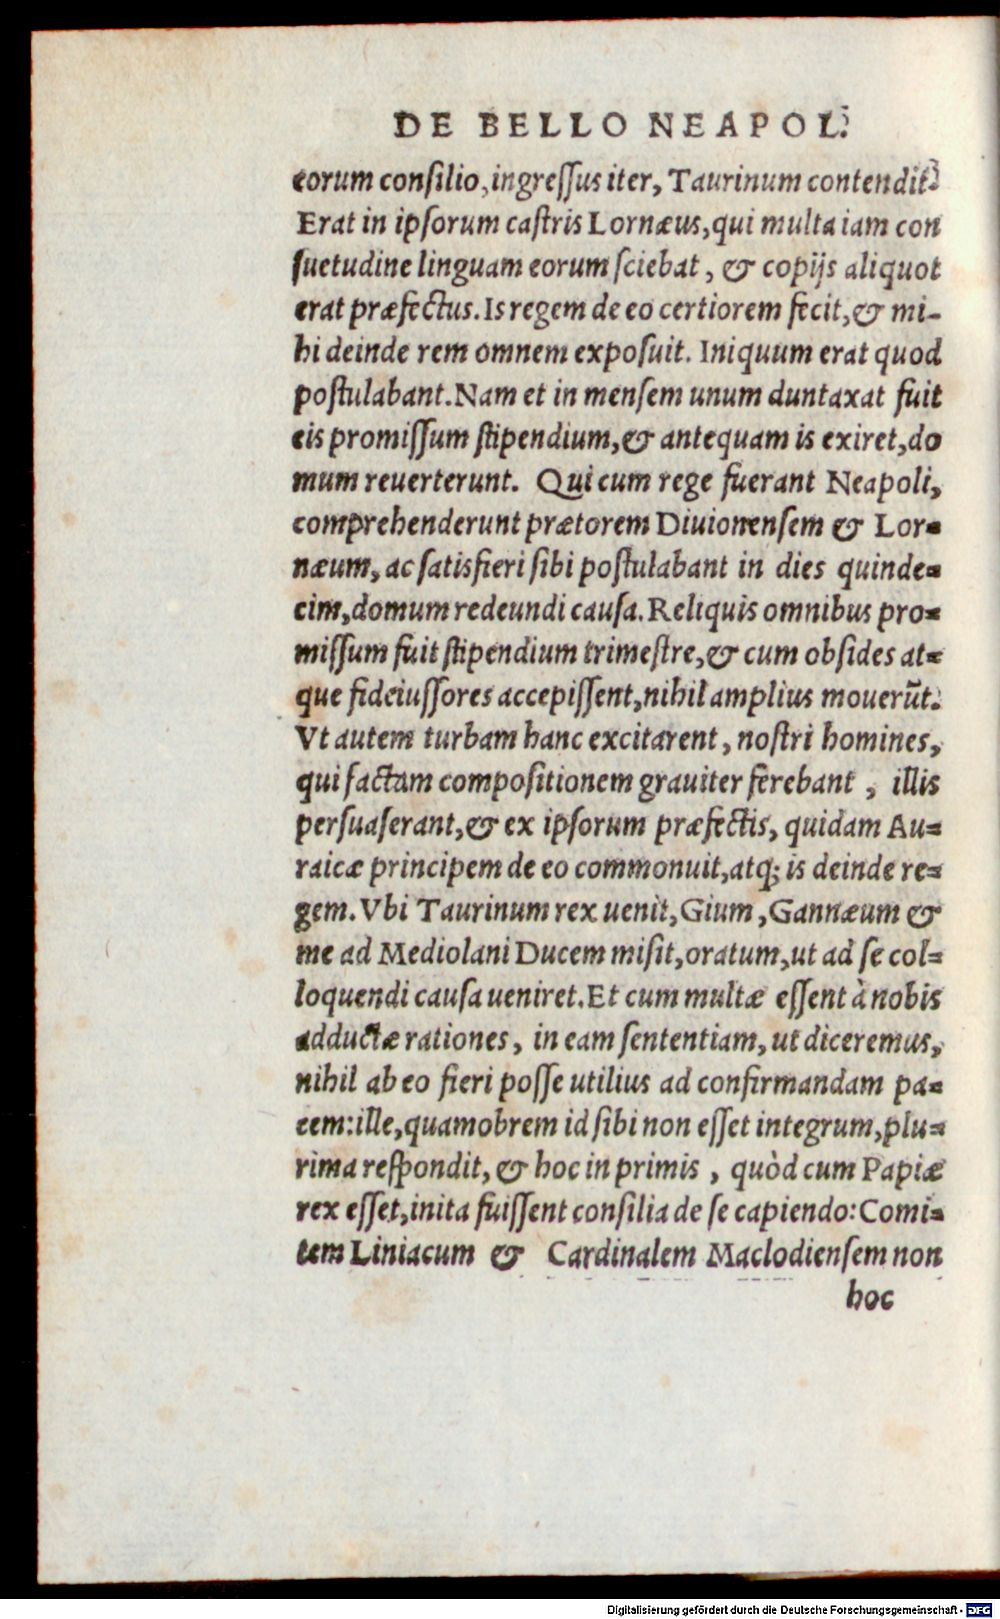 DE BELLO NEAPOL.
eorum consilio, ingressus iter, Taurinum contendit.
Erat in ipsorum castris Lornæus, qui multa iam con
suetudine linguam eorum sciebat, & copijs aliquot
erat præfectus. Is regem de eo certiorem fecit, & mi-
hi deinde rem omnem exposuit. Iniquum erat quod
postulabant. Nam et in mensem unum duntaxat fuit
eis promissum stipendium, & antequam is exiret, do
mum reuerterunt. Qui cum rege fuerant Neapoli,
comprehenderunt prætorem Diuionensem & Lor-
næum, ac satisfieri sibi postulabant in dies quinde-
cim, domum redeundi causa. Reliquis omnibus pro-
missum fuit stipendium trimestre, & cum obsides at-
que fideiussores accepissent, nihil amplius mouerūt.
Vt autem turbam hanc excitarent, nostri homines,
qui factam compositionem grauiter ferebant, illis
persuaserant, & ex ipsorum præfectis, quidam Au-
raicæ principem de eo commonuit, atq; is deinde re-
gem. Vbi Taurinum rex uenit, Gium, Gannæum &
me ad Mediolani Ducem misit, oratum, ut ad se col-
loquendi causa ueniret. Et cum multæ essent à nobis
adductæ rationes, in eam sententiam, ut diceremus,
nihil ab eo fieri posse utilius ad confirmandam pa-
cem: ille, quamobrem id sibi non esset integrum, plu-
rima respondit, & hoc in primis, quòd cum Papiæ
rex esset, inita fuissent consilia de se capiendo: Comi-
tem Liniacum & Cardinalem Maclodiensem non
hoc
Digitalisierung gefördert durch die Deutsche Forschungsgemeinschaft - DFG